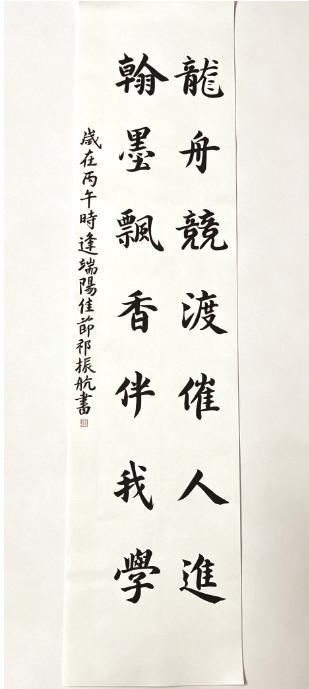 龍舟競渡催人進
翰墨飄香伴我學
歲在丙午時逢端陽佳節祁振航書